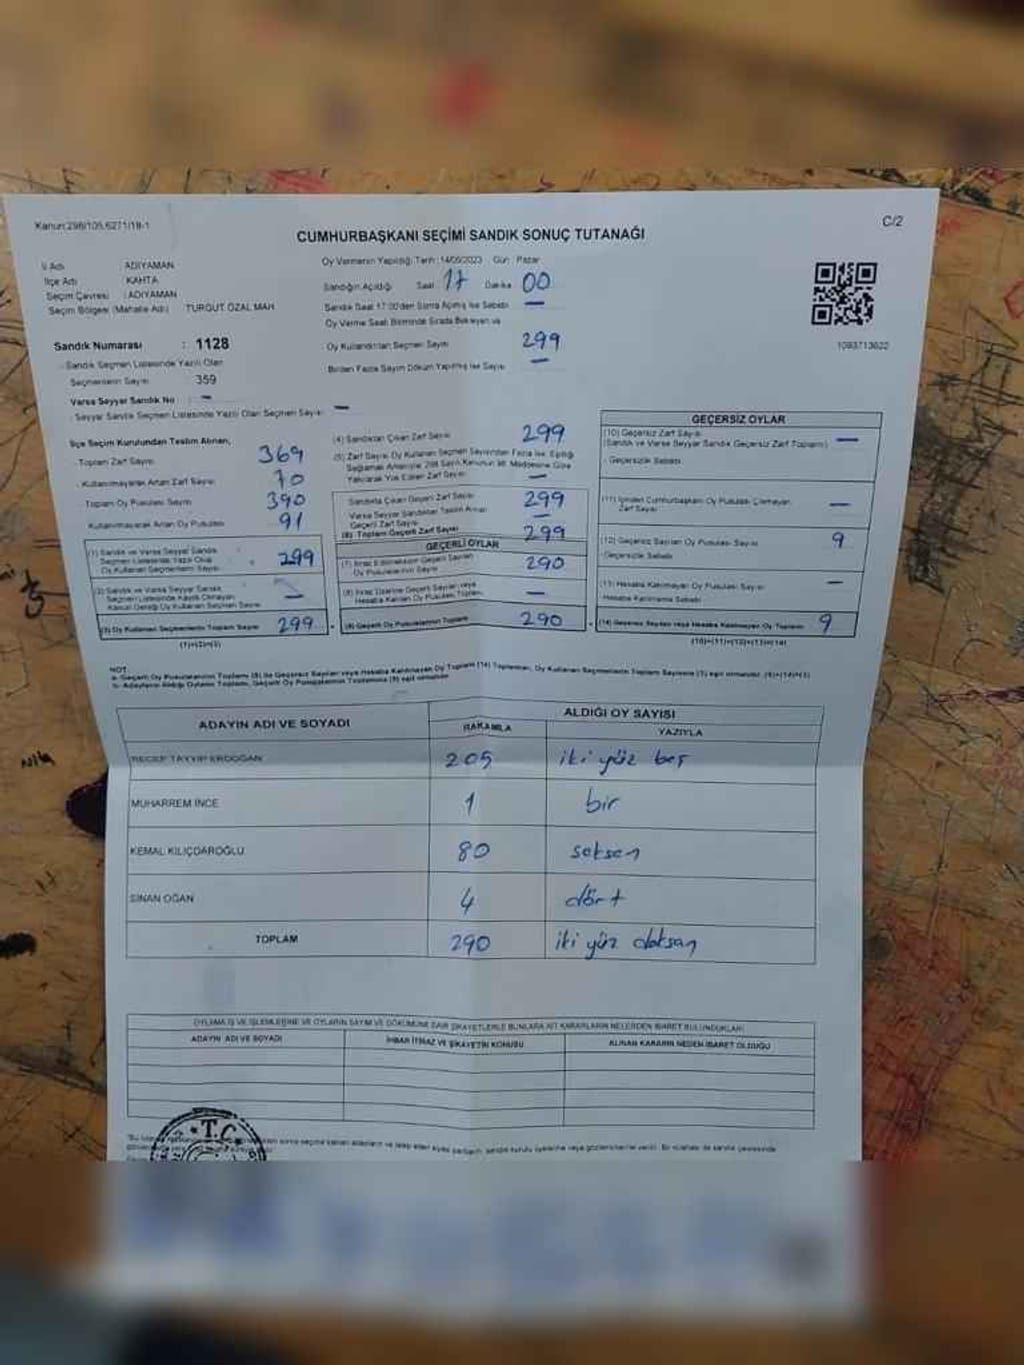 Kanun:298/105,6271/18-1
C/2
CUMHURBAŞKANI SEÇİMİ SANDIK SONUÇ TUTANAĞI
İl Adı : ADIYAMAN
İlçe Adı : KAHTA
Seçim Çevresi : ADIYAMAN
Seçim Bölgesi (Mahalle Adı) TURGUT ÖZAL MAH
Sandık Numarası : 1128
Sandık Seçmen Listesinde Yazılı Olan
Seçmenlerin Sayısı 359
Varsa Seyyar Sandık No : -
Seyyar Sandık Seçmen Listesinde Yazılı Olan Seçmen Sayısı -
Oy Vermenin Yapıldığı Tarih : 14/05/2023 Gün : Pazar
Sandığın Açıldığı Saat 17 Dakika 00
Sandık Saat 17:00'den Sonra Açılmış İse Sebebi -
Oy Verme Saati Bitiminde Sırada Bekleyen ve
Oy Kullandırılan Seçmen Sayısı 299
Birden Fazla Sayım Döküm Yapılmış İse Sayısı -
1093713622
İlçe Seçim Kurulundan Teslim Alınan,
Toplam Zarf Sayısı 369
Kullanılmayarak Artan Zarf Sayısı 70
Toplam Oy Pusulası Sayısı 390
Kullanılmayarak Artan Oy Pusulası 91
(1) Sandık ve Varsa Seyyar Sandık
Seçmen Listesinde Yazılı Olup
Oy Kullanan Seçmenlerin Sayısı 299
(2) Sandık ve Varsa Seyyar Sandık
Seçmen Listesinde Kayıtlı Olmayan
Kanun Gereği Oy Kullanan Seçmen Sayısı -
(3) Oy Kullanan Seçmenlerin Toplam Sayısı 299
(1)+(2)=(3)
(4) Sandıktan Çıkan Zarf Sayısı 299
(5) Zarf Sayısı Oy Kullanan Seçmen Sayısından Fazla İse, Eşitliği
Sağlamak Amacıyla 298 Sayılı Kanunun 98. Maddesine Göre
Yakılarak Yok Edilen Zarf Sayısı -
Sandıkta Çıkan Geçerli Zarf Sayısı 299
Varsa Seyyar Sandıktan Teslim Alınan
Geçerli Zarf Sayısı -
(6) Toplam Geçerli Zarf Sayısı 299
GEÇERLİ OYLAR
(7) İtiraz Edilmeksizin Geçerli Sayılan
Oy Pusulalarının Sayısı 290
(8) İtiraz Üzerine Geçerli Sayılan veya
Hesaba Katılan Oy Pusulası Toplamı -
(9) Geçerli Oy Pusulalarının Toplamı 290
GEÇERSİZ OYLAR
(10) Geçersiz Zarf Sayısı
(Sandık ve Varsa Seyyar Sandık Geçersiz Zarf Toplamı) -
Geçersizlik Sebebi
(11) İçinden Cumhurbaşkanı Oy Pusulası Çıkmayan
Zarf Sayısı -
(12) Geçersiz Sayılan Oy Pusulası Sayısı 9
Geçersizlik Sebebi
(13) Hesaba Katılmayan Oy Pusulası Sayısı -
Hesaba Katılmama Sebebi
(14) Geçersiz Sayılan veya Hesaba Katılmayan Oy Toplamı 9
(10)+(11)+(12)+(13)=(14)
NOT:
a- Geçerli Oy Pusulalarının Toplamı (9) ile Geçersiz Sayılan veya Hesaba Katılmayan Oy Toplamı (14) Toplamları, Oy Kullanan Seçmenlerin Toplam Sayısına (3) eşit olmalıdır. (9)+(14)=(3)
b- Adayların Aldığı Oyların Toplamı, Geçerli Oy Pusulalarının Toplamına (9) eşit olmalıdır
ADAYIN ADI VE SOYADI
ALDIĞI OY SAYISI
RAKAMLA YAZIYLA
RECEP TAYYİP ERDOĞAN 205 iki yüz beş
MUHARREM İNCE 1 bir
KEMAL KILIÇDAROĞLU 80 seksen
SİNAN OĞAN 4 dört
TOPLAM 290 iki yüz doksan
OYLAMA İŞ VE İŞLEMLERİNE VE OYLARIN SAYIM VE DÖKÜMÜNE DAİR ŞİKAYETLERLE BUNLARA AİT KARARLARIN NELERDEN İBARET BULUNDUKLARI
ADAYIN ADI VE SOYADI
İHBAR İTİRAZ VE ŞİKAYETİN KONUSU
ALINAN KARARIN NEDEN İBARET OLDUĞU
T.C.